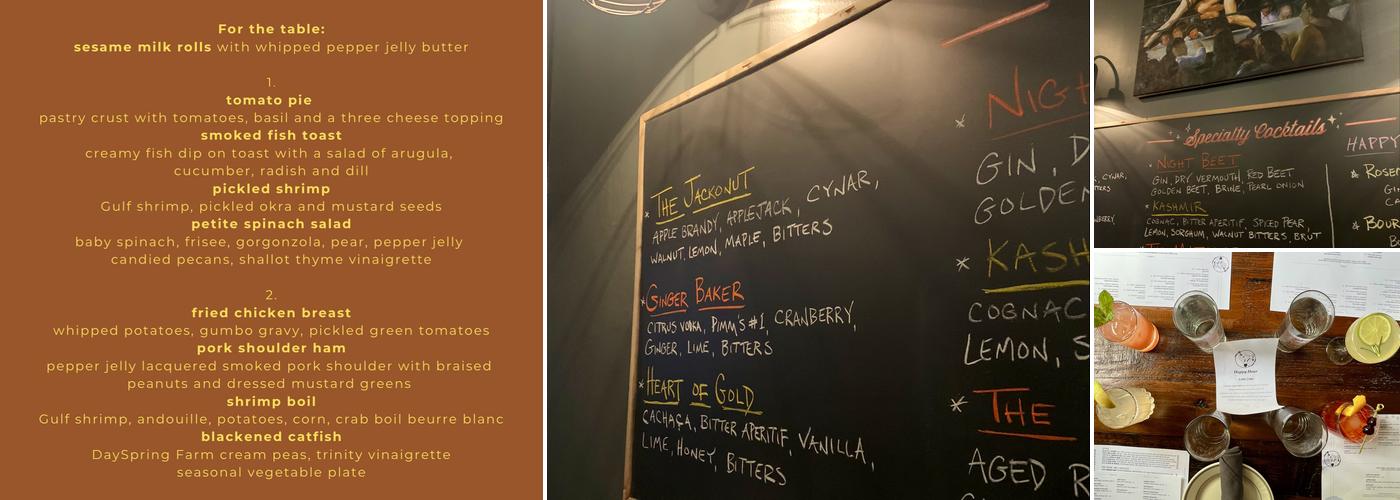 For the table:
sesame milk rolls with whipped pepper jelly butter
1.
tomato pie
pastry crust with tomatoes, basil and a three cheese topping
smoked fish toast
creamy fish dip on toast with a salad of arugula,
cucumber, radish and dill
pickled shrimp
Gulf shrimp, pickled okra and mustard seeds
petite spinach salad
baby spinach, frisee, gorgonzola, pear, pepper jelly
candied pecans, shallot thyme vinaigrette
2.
fried chicken breast
whipped potatoes, gumbo gravy, pickled green tomatoes
pork shoulder ham
pepper jelly lacquered smoked pork shoulder with braised
peanuts and dressed mustard greens
shrimp boil
Gulf shrimp, andouille, potatoes, corn, crab boil beurre blanc
blackened catfish
DaySpring Farm cream peas, trinity vinaigrette
seasonal vegetable plate
* THE JACKONUT
APPLE BRANDY, APPLEJACK, CYNAR,
WALNUT, LEMON, MAPLE, BITTERS
* GINGER BAKER
CITRUS VODKA, PIMM'S #1, CRANBERRY,
GINGER, LIME, BITTERS
* HEART OF GOLD
CACHAÇA, BITTER APERITIF, VANILLA,
LIME, HONEY, BITTERS
* NIGH
GIN, D
GOLDEN
* KASH
COGNAC
LEMON, S
* THE
AGED R
Specialty Cocktails
* NIGHT BEET
GIN, DRY VERMOUTH, RED BEET
GOLDEN BEET, BRINE, PEARL ONION
* KASHMIR
COGNAC, BITTER APERITIF, SPICED PEAR,
LEMON, SORGHUM, WALNUT BITTERS, BRUT
CYNAR,
HAPPY
* ROSE
* BOUR
Happy Hour